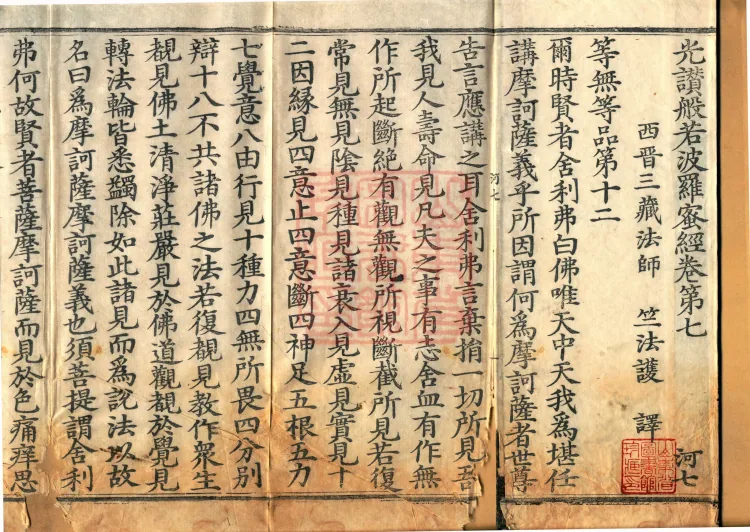 光讃般若波羅蜜經卷第七　河七
西晉三藏法師　竺法護　譯
等無等品第十二
爾時賢者舍利弗白佛唯天中天我爲堪任
講摩訶薩義乎所因謂何爲摩訶薩者世尊
河七
告言應講之耳舍利弗言棄捐一切所見吾
我見人壽命見凡夫之事有志舍血有作無
作所起斷絕有觀無觀所視斷截所見若復
常見無見陰見種見諸衰入見虛見實見十
二因緣見四意止四意斷四神足五根五力
七覺意八由行見十種力四無所畏四分別
辯十八不共諸佛之法若復覩見教作衆生
覩見佛土清淨莊嚴見於佛道觀覩於覺見
轉法輪皆悉蠲除如此諸見而爲說法以故
名曰爲摩訶薩摩訶薩義也須菩提謂舍利
弗何故賢者菩薩摩訶薩而見於色痛痒思